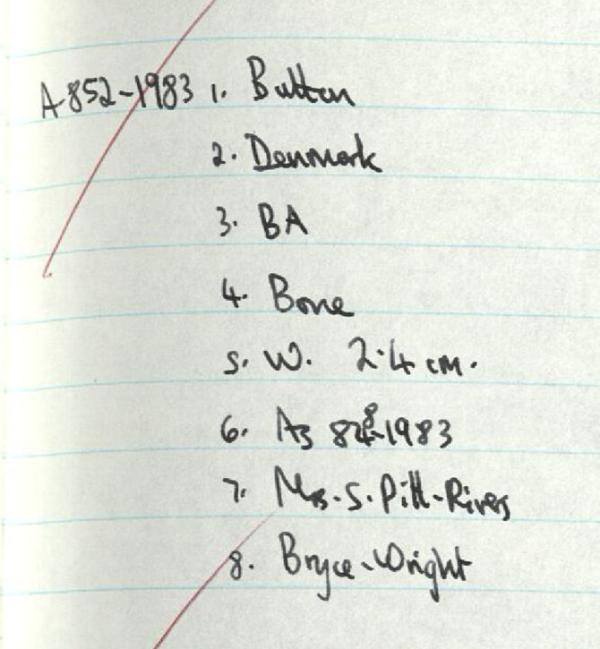 A-852-1983 1. Button
2. Denmark
3. BA
4. Bone
5. W. 2.4 cm.
6. As 848-1983
7. Mrs. S. Pitt-Rivers
8. Bryce-Wright